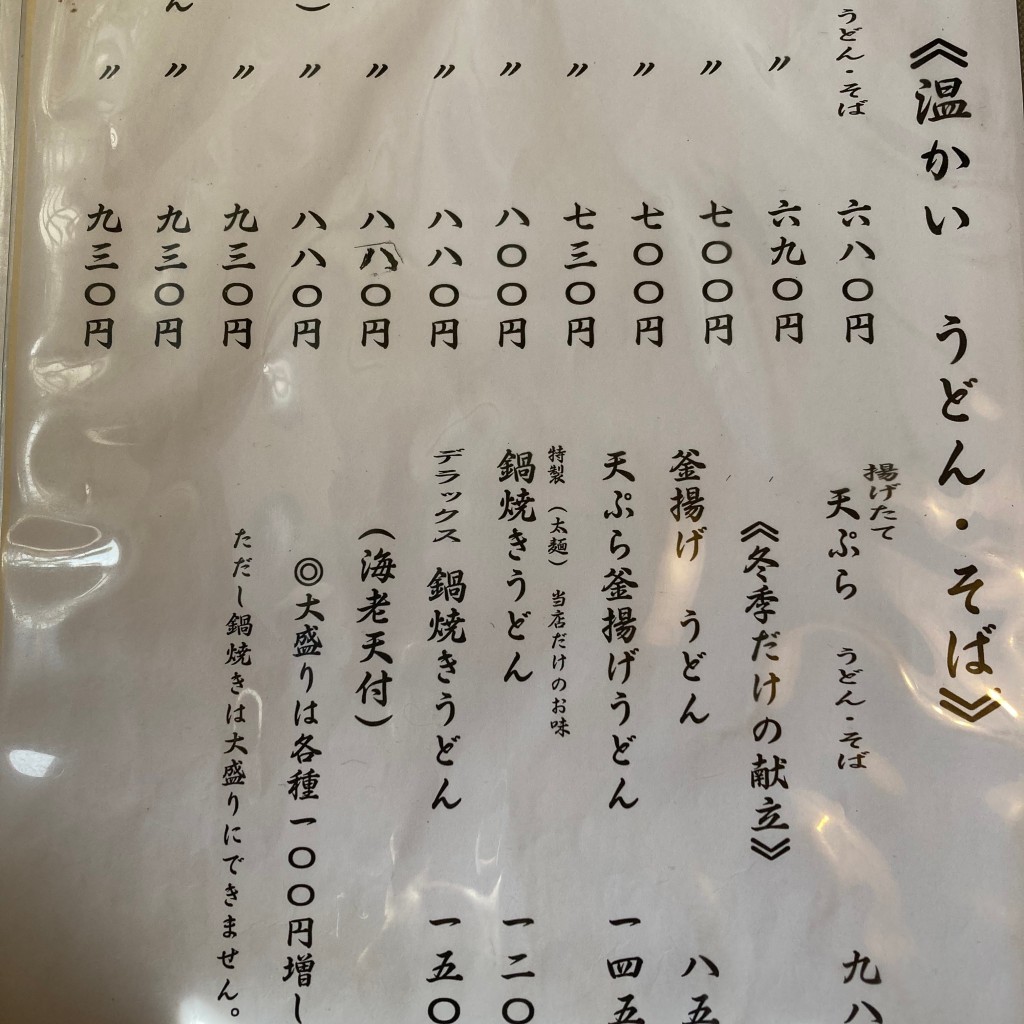 《温かい うどん・そば》
うどん・そば 六八〇円
〃 六九〇円
〃 七〇〇円
〃 七〇〇円
〃 七三〇円
〃 八〇〇円
〃 八八〇円
〃 八八〇円
〃 八八〇円
〃 九三〇円
〃 九三〇円
〃 九三〇円
揚げたて
天ぷら うどん・そば 九八
《冬季だけの献立》
釜揚げ うどん 八五
天ぷら釜揚げうどん 一四五
特製(太麺)当店だけのお味
鍋焼きうどん 一二〇
デラックス 鍋焼きうどん 一五〇
(海老天付)
◎大盛りは各種一〇〇円増し
ただし鍋焼きは大盛りにできません。